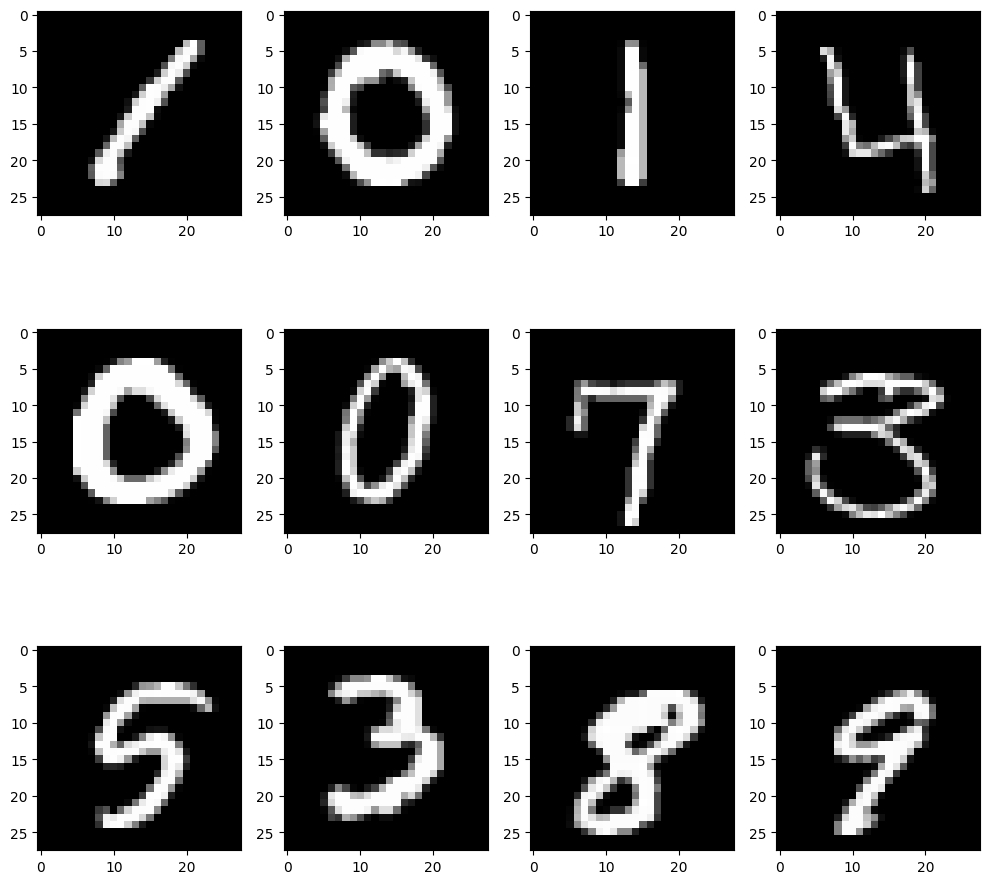 0 5 10 15 20 25 0 10 20 1
0 5 10 15 20 25 0 10 20 0
0 5 10 15 20 25 0 10 20 1
0 5 10 15 20 25 0 10 20 4
0 5 10 15 20 25 0 10 20 0
0 5 10 15 20 25 0 10 20 0
0 5 10 15 20 25 0 10 20 7
0 5 10 15 20 25 0 10 20 3
0 5 10 15 20 25 0 10 20 5
0 5 10 15 20 25 0 10 20 3
0 5 10 15 20 25 0 10 20 8
0 5 10 15 20 25 0 10 20 9